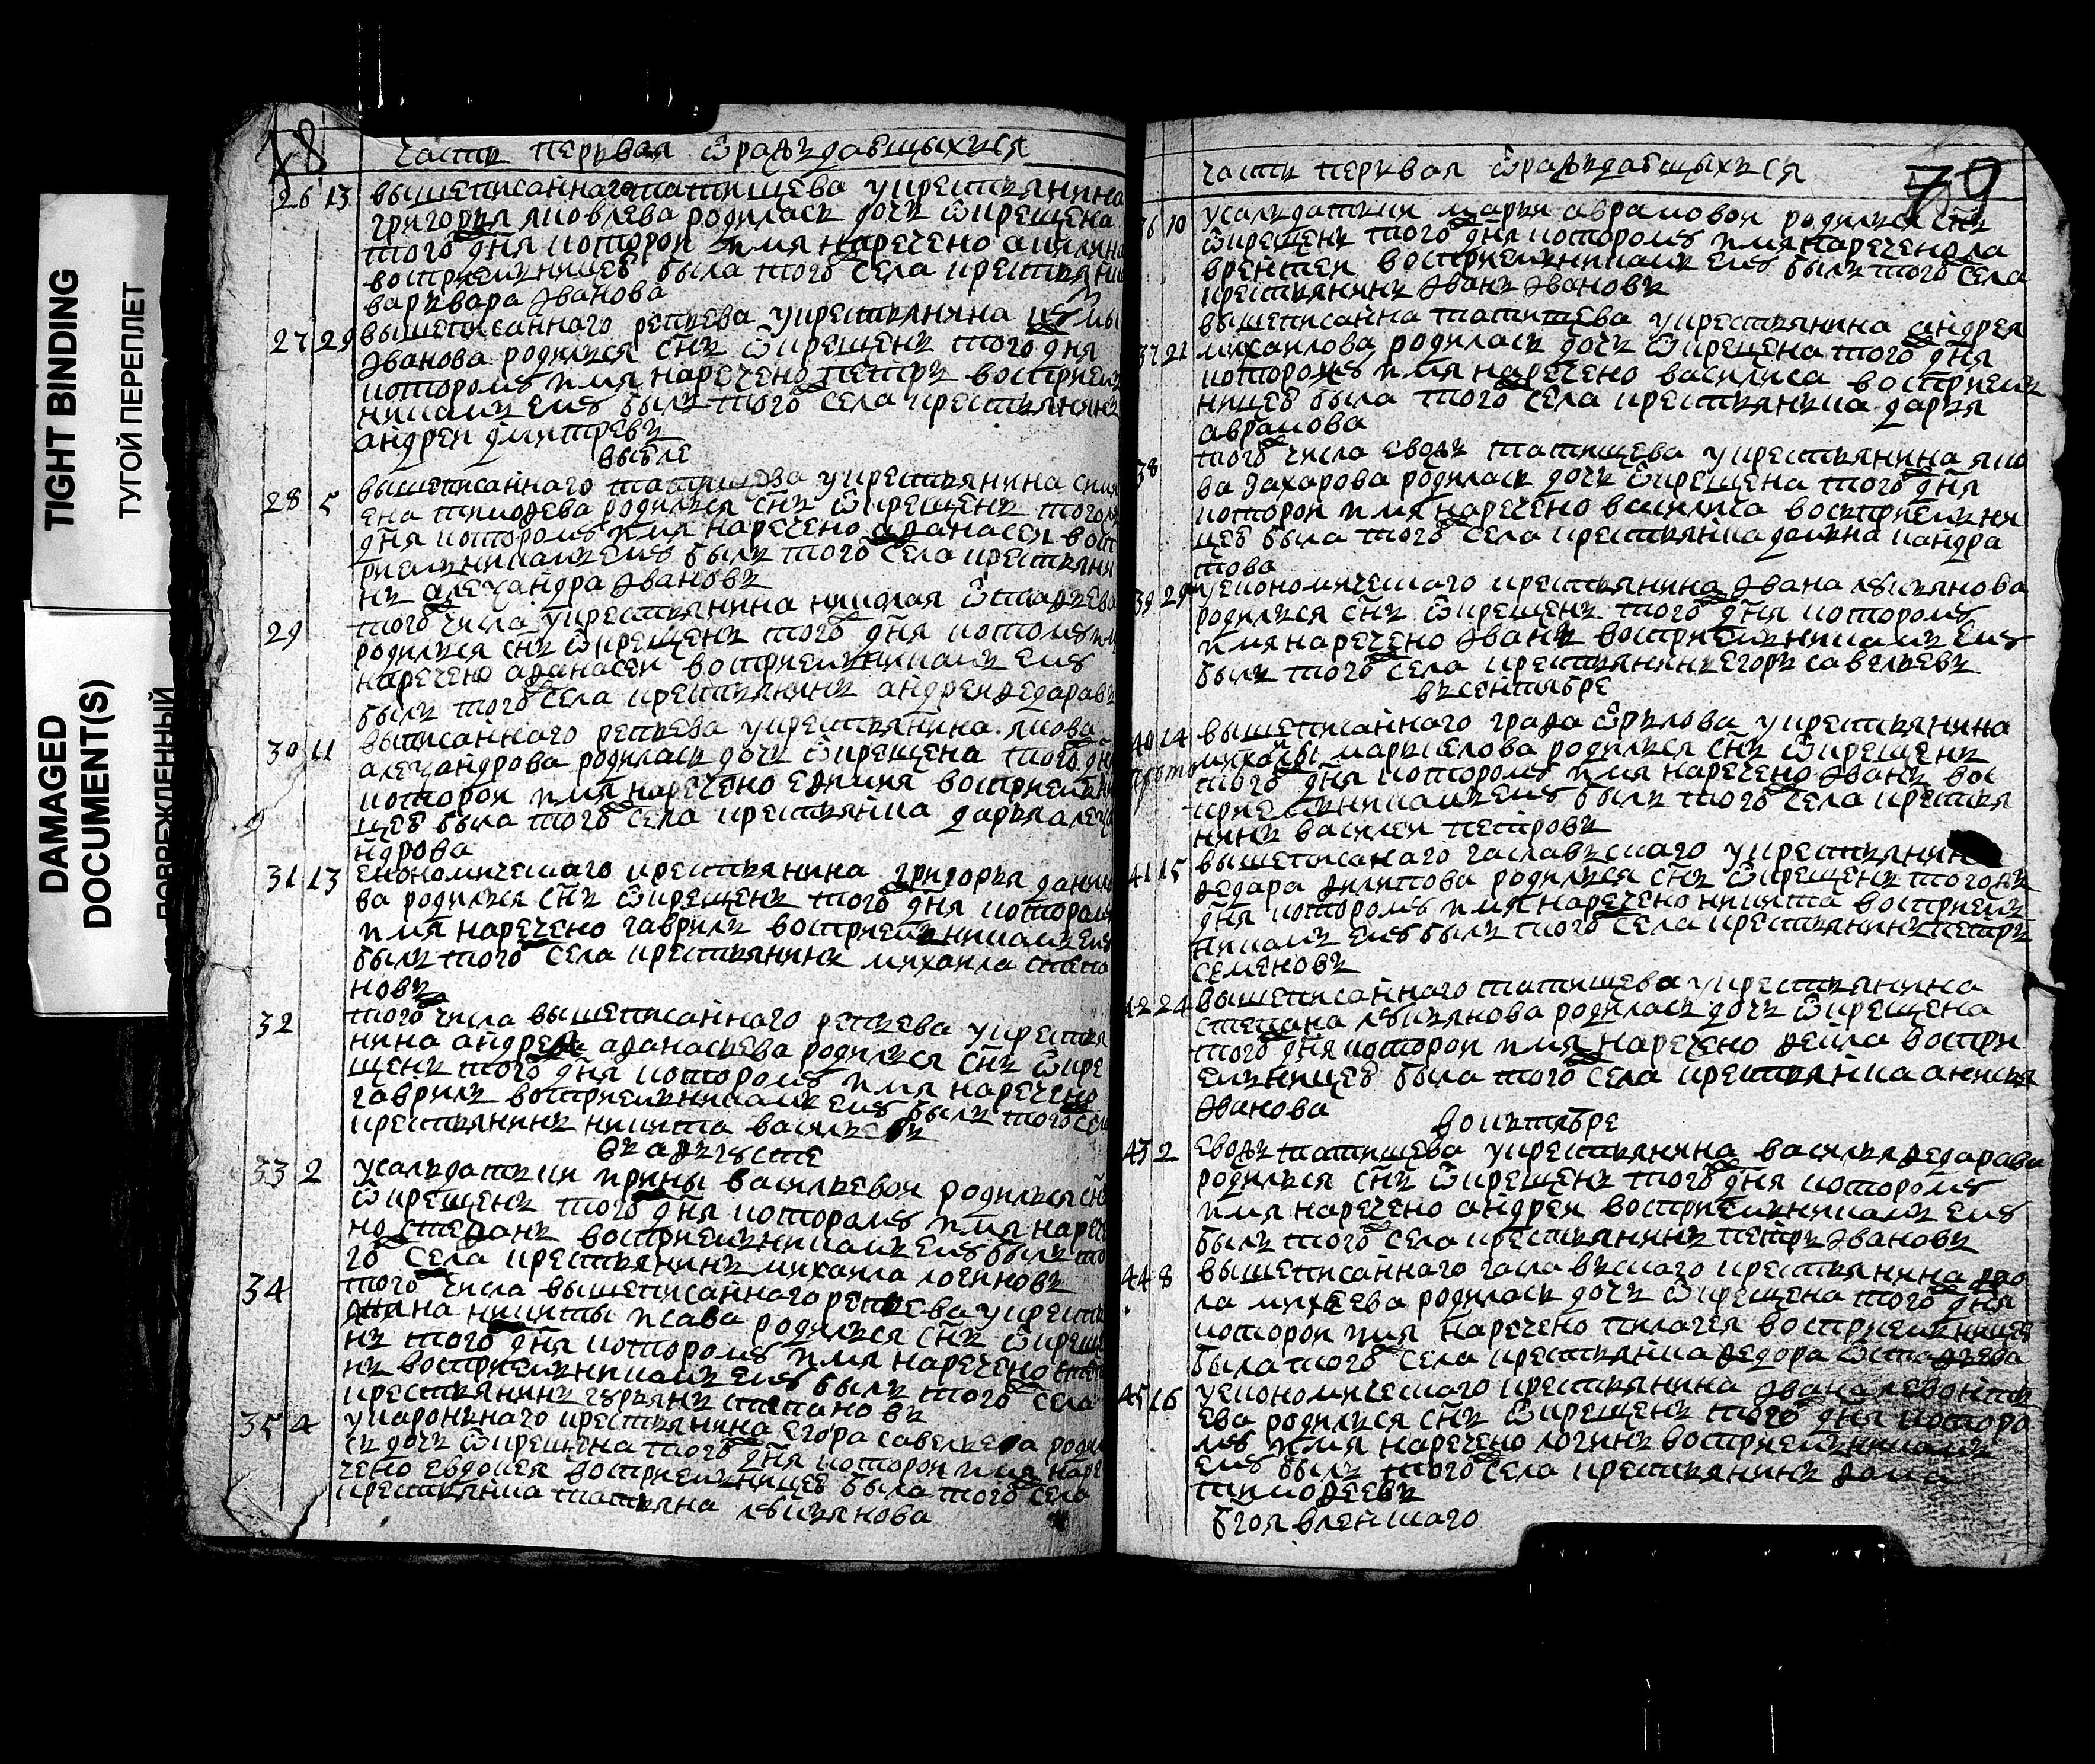 TIGHT BINDING
ТУГОЙ ПЕРЕПЛЕТ
DAMAGED
DOCUMENT(S)
ПОВРЕЖДЕННЫЙ
часть перьвая ѡражъдавшыхься
26 13 вышеписаннаго татищева укрестьянина
григорья яковлева родилась дочь ѿкрещена
того дня которои имя наречено акилина
восприемьницеѵ была того села крестьянка
варьвара іванова
27 29 вышеписанного репьева укрестьянина кузмы
іванова родилься снъ ѿкрещенъ того дня
которому имя наречено петръ восприемь
никамъ ему былъ того села крестьянинъ
андреи дмитревъ
выюле
28 5 вышеписанного татищева укрестьянина сим
ена тимофева родилься снъ ѿкрещенъ того
дня которому имя наречено афанасеи восп
риемьникамъ ему былъ того села крестьяни
нъ алеѯандра івановъ
29 того числа укрестьянина николая ѿстафъева
родилься снъ ѿкрещенъ того дня котому имя
наречено афанасеи восприемьникамъ ему
былъ того села крестьянинъ андреи федаравъ
30 11 выписанного репьева укрестьянина якова
алеѯандрова родилась дочь ѿкрещена того дня
которои имя наречено ефимия восприемьни
цеѵ была того села крестьянка дарья алеѯа
ндрова
31 13 економическаго крестьянина григорья данил
ва родилься снъ ѿкрещенъ того дня которому
имя наречено гаврилъ восприемьникамъ ему
былъ того села крестьянинъ михаила степа
новъ
32 того числа вышеписанного репьева укрестья
нина андрея афанасьева родилься снъ ѿкре
щенъ того дня которому имя наречено
гаврилъ восприемьникамъ ему былъ того села
крестьянинъ никита васильевъ
въ авъгусте
33 2 усалъдатъки ирины васильевои родилься снъ
ѿкрещенъ того дня которому имя нарече
но стефанъ восприемьникамъ ему былъ то
го села крестьянинъ михаила логиновъ
34 того числа вышеписанного репьева укрестья
нина никиты исава родилься снъ ѿкреще
нъ того дня которому имя наречено степа
нъ восприемьникамъ ему былъ того села
крестьянинъ гурьянъ степановъ
35 4 укароннаго крестьянина егора савельева родила
сь дочь ѿкрещена того дня которои имя наре
чено евдокея восприемьницеѵ была того села
крестьянка татьяна лукьянова
70
часть перьвая ѡражъдавшыхься
36 10 усалъдатьки марьи аврамовои родилься снъ
ѿкрещенъ того дня которому имя наречено ла
врентеи восприемьникамъ ему былъ того села
крестьянинъ іванъ івановъ
37 21 вышеписанна татищева укрестьянина андрея
михаилова родилась дочь ѿкрещена того дня
которому имя наречено василиса восприемь
ницеѵ была того села крестьянина дарья
аврамова
38 того числа евожъ татищева укрестьянина яко
ва захарова родилась дочь ѿкрещена того дня
которои имя наречено василиса восприемьни
цеѵ была того села крестьянка домьна кандра
това
39 29 уекономическаго крестьянина івана лукьянова
родилься снъ ѿкрещенъ того дня которому
имя наречено іванъ восприемьникамъ ему
былъ того села крестьянинъ егоръ савельевъ
въсентябре
40 14 вышеписанного графа ѡрълова укрестьянина
миколы маркелова родилься снъ ѿкрещенъ
того дня которому имя наречено іванъ вос
приемьникамъ ему былъ того села крестья
нинъ василеи петровъ
41 15 вышеписанаго гаславъскаго укрестьянина
федара филипова родилься снъ ѿкрещенъ тогожъ
дня которому имя наречено никита восприемь
никамъ ему былъ того села крестьянинъ петаръ
семеновъ
42 24 вышеписанного татищева укрестьянина
степана лукьянова родилась дочь ѿкрещена
того дня которои имя наречено фекла воспри
емьницеѵ была того села крестьянка анисья
іванова
вокътябре
43 2 евожъ татищева укрестьянина василья федарава
родилься снъ ѿкрещенъ того дня которому
имя наречено андреи восприемьникамъ ему
былъ того села крестьянинъ петръ івановъ
44 8 вышеписанного гаславъскаго крестьянина фро
ла михеева родилась дочь ѿкрещена того дня
которои имя наречено пилагея восприемьницеѵ
была того села крестьянка федора ѿстафьева
45 16 уекономическаго крестьянина івана левонть
ева родилься снъ ѿкрещенъ того дня которо
му имя наречено логинъ восприемьникамъ
ему былъ того села крестьянинъ фама
тимофеевъ
бгоявленскаго